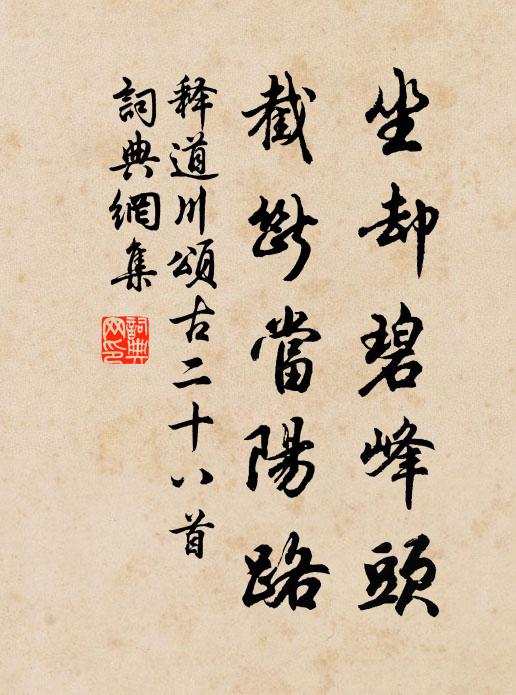 坐却碧峰頭
截斷當陽路
释道川頌古二十八首
詞典網集
詞典網印